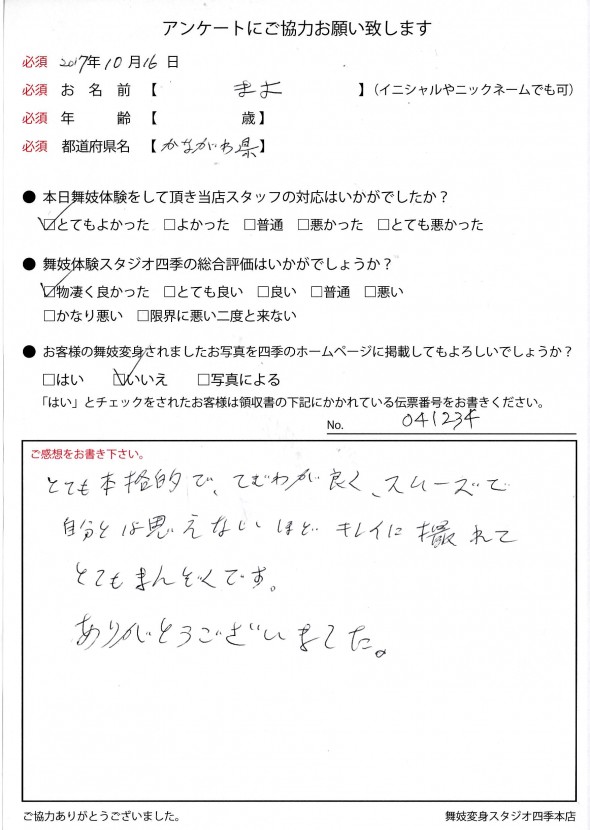 アンケートにご協力お願い致します
必須 2017年10月16日
必須 お名前 【 まお 】（イニシャルやニックネームでも可）
必須 年齢 【 歳】
必須 都道府県名 【かながわ県】
● 本日舞妓体験をして頂き当店スタッフの対応はいかがでしたか？
☑とてもよかった □よかった □普通 □悪かった □とても悪かった
● 舞妓体験スタジオ四季の総合評価はいかがでしょうか？
☑物凄く良かった □とても良い □良い □普通 □悪い
□かなり悪い □限界に悪い二度と来ない
● お客様の舞妓変身されましたお写真を四季のホームページに掲載してもよろしいでしょうか？
□はい ☑いいえ □写真による
「はい」とチェックをされたお客様は領収書の下記にかかれている伝票番号をお書きください。
No. 041234
ご感想をお書き下さい。
とても本格的で、てぎわが良く、スムーズで
自分とは思えないほど キレイに撮れて
とてもまんぞくです。
ありがとうございました。
ご協力ありがとうございました。 舞妓変身スタジオ四季本店